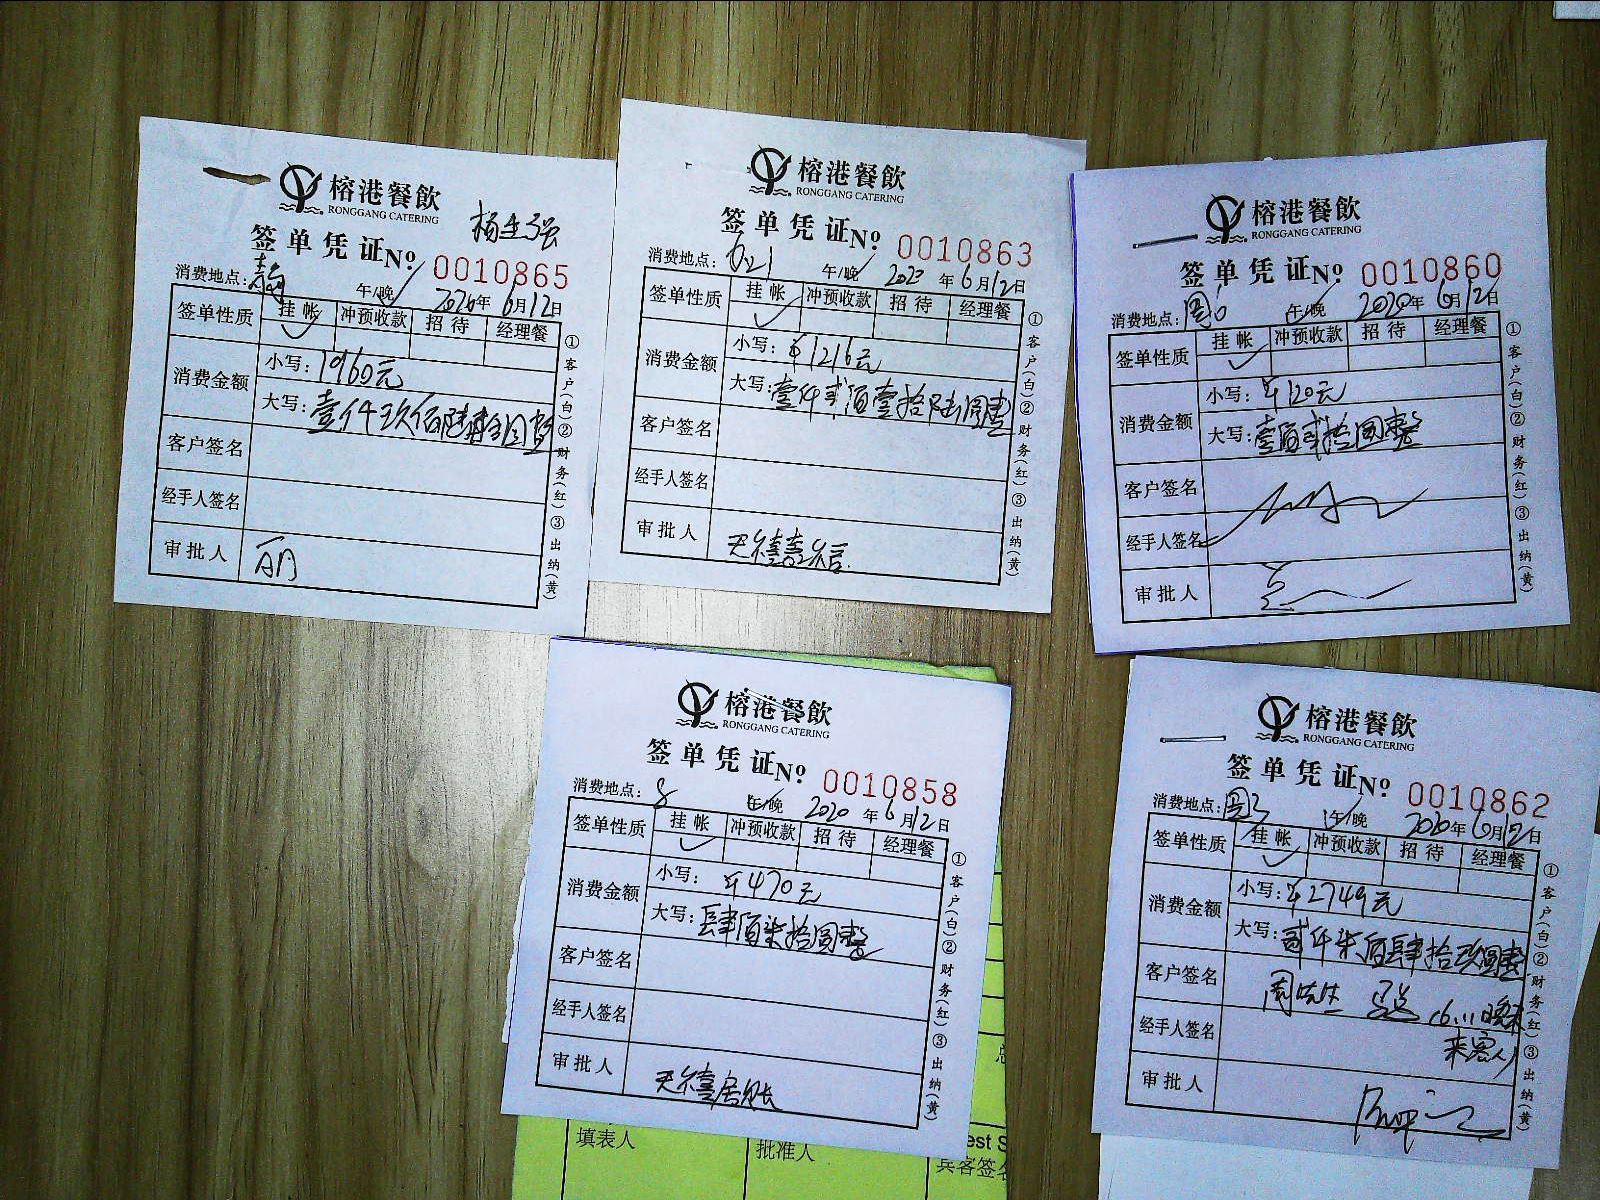 榕港餐飲
RONGGANG CATERING
签单凭证№ 0010865
消费地点: 午/晚 2020年6月12日
签单性质 挂帐 冲预收款 招待 经理餐
消费金额 小写: 1960元
大写: 壹仟玖佰陆拾圆整
客户签名
经手人签名
审批人
①客户(白)②财务(红)③出纳(黄)
榕港餐飲
RONGGANG CATERING
签单凭证№ 0010863
消费地点: 午/晚 2020年6月12日
签单性质 挂帐 冲预收款 招待 经理餐
消费金额 小写: ¥1216元
大写: 壹仟贰佰壹拾陆圆整
客户签名
经手人签名
审批人
①客户(白)②财务(红)③出纳(黄)
榕港餐飲
RONGGANG CATERING
签单凭证№ 0010860
消费地点: 午/晚 2020年6月12日
签单性质 挂帐 冲预收款 招待 经理餐
消费金额 小写: ¥120元
大写: 壹佰贰拾圆整
客户签名
经手人签名
审批人
①客户(白)②财务(红)③出纳(黄)
榕港餐飲
RONGGANG CATERING
签单凭证№ 0010858
消费地点: 8 午/晚 2020年6月12日
签单性质 挂帐 冲预收款 招待 经理餐
消费金额 小写: ¥470元
大写: 肆佰柒拾圆整
客户签名
经手人签名
审批人
①客户(白)②财务(红)③出纳(黄)
填表人 批准人
榕港餐飲
RONGGANG CATERING
签单凭证№ 0010862
消费地点: 午/晚 2020年6月12日
签单性质 挂帐 冲预收款 招待 经理餐
消费金额 小写: ¥2749元
大写: 贰仟柒佰肆拾玖圆整
客户签名
经手人签名 来客人
审批人
①客户(白)②财务(红)③出纳(黄)